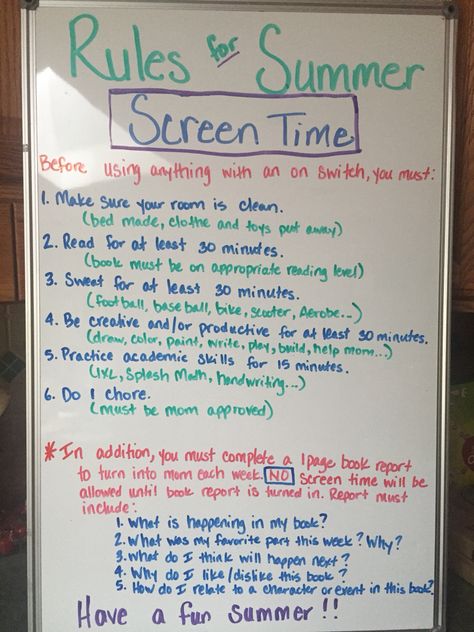 Rules for Summer
Screen Time
Before using anything with an on switch, you must:
1. Make sure your room is clean.
(bed made, clothe and toys put away)
2. Read for at least 30 minutes.
(book must be on appropriate reading level)
3. Sweat for at least 30 minutes.
(football, baseball, bike, scooter, Aerobe...)
4. Be creative and/or productive for at least 30 minutes.
(draw, color, paint, write, play, build, help mom...)
5. Practice academic skills for 15 minutes.
(IXL, Splash Math, handwriting...)
6. Do 1 chore.
(must be mom approved)
*In addition, you must complete a 1page book report
to turn into mom each week. NO screen time will be
allowed until book report is turned in. Report must
include:
1. What is happening in my book?
2. What was my favorite part this week? Why?
3. What do I think will happen next?
4. Why do I like/dislike this book?
5. How do I relate to a character or event in this book?
Have a fun summer!!